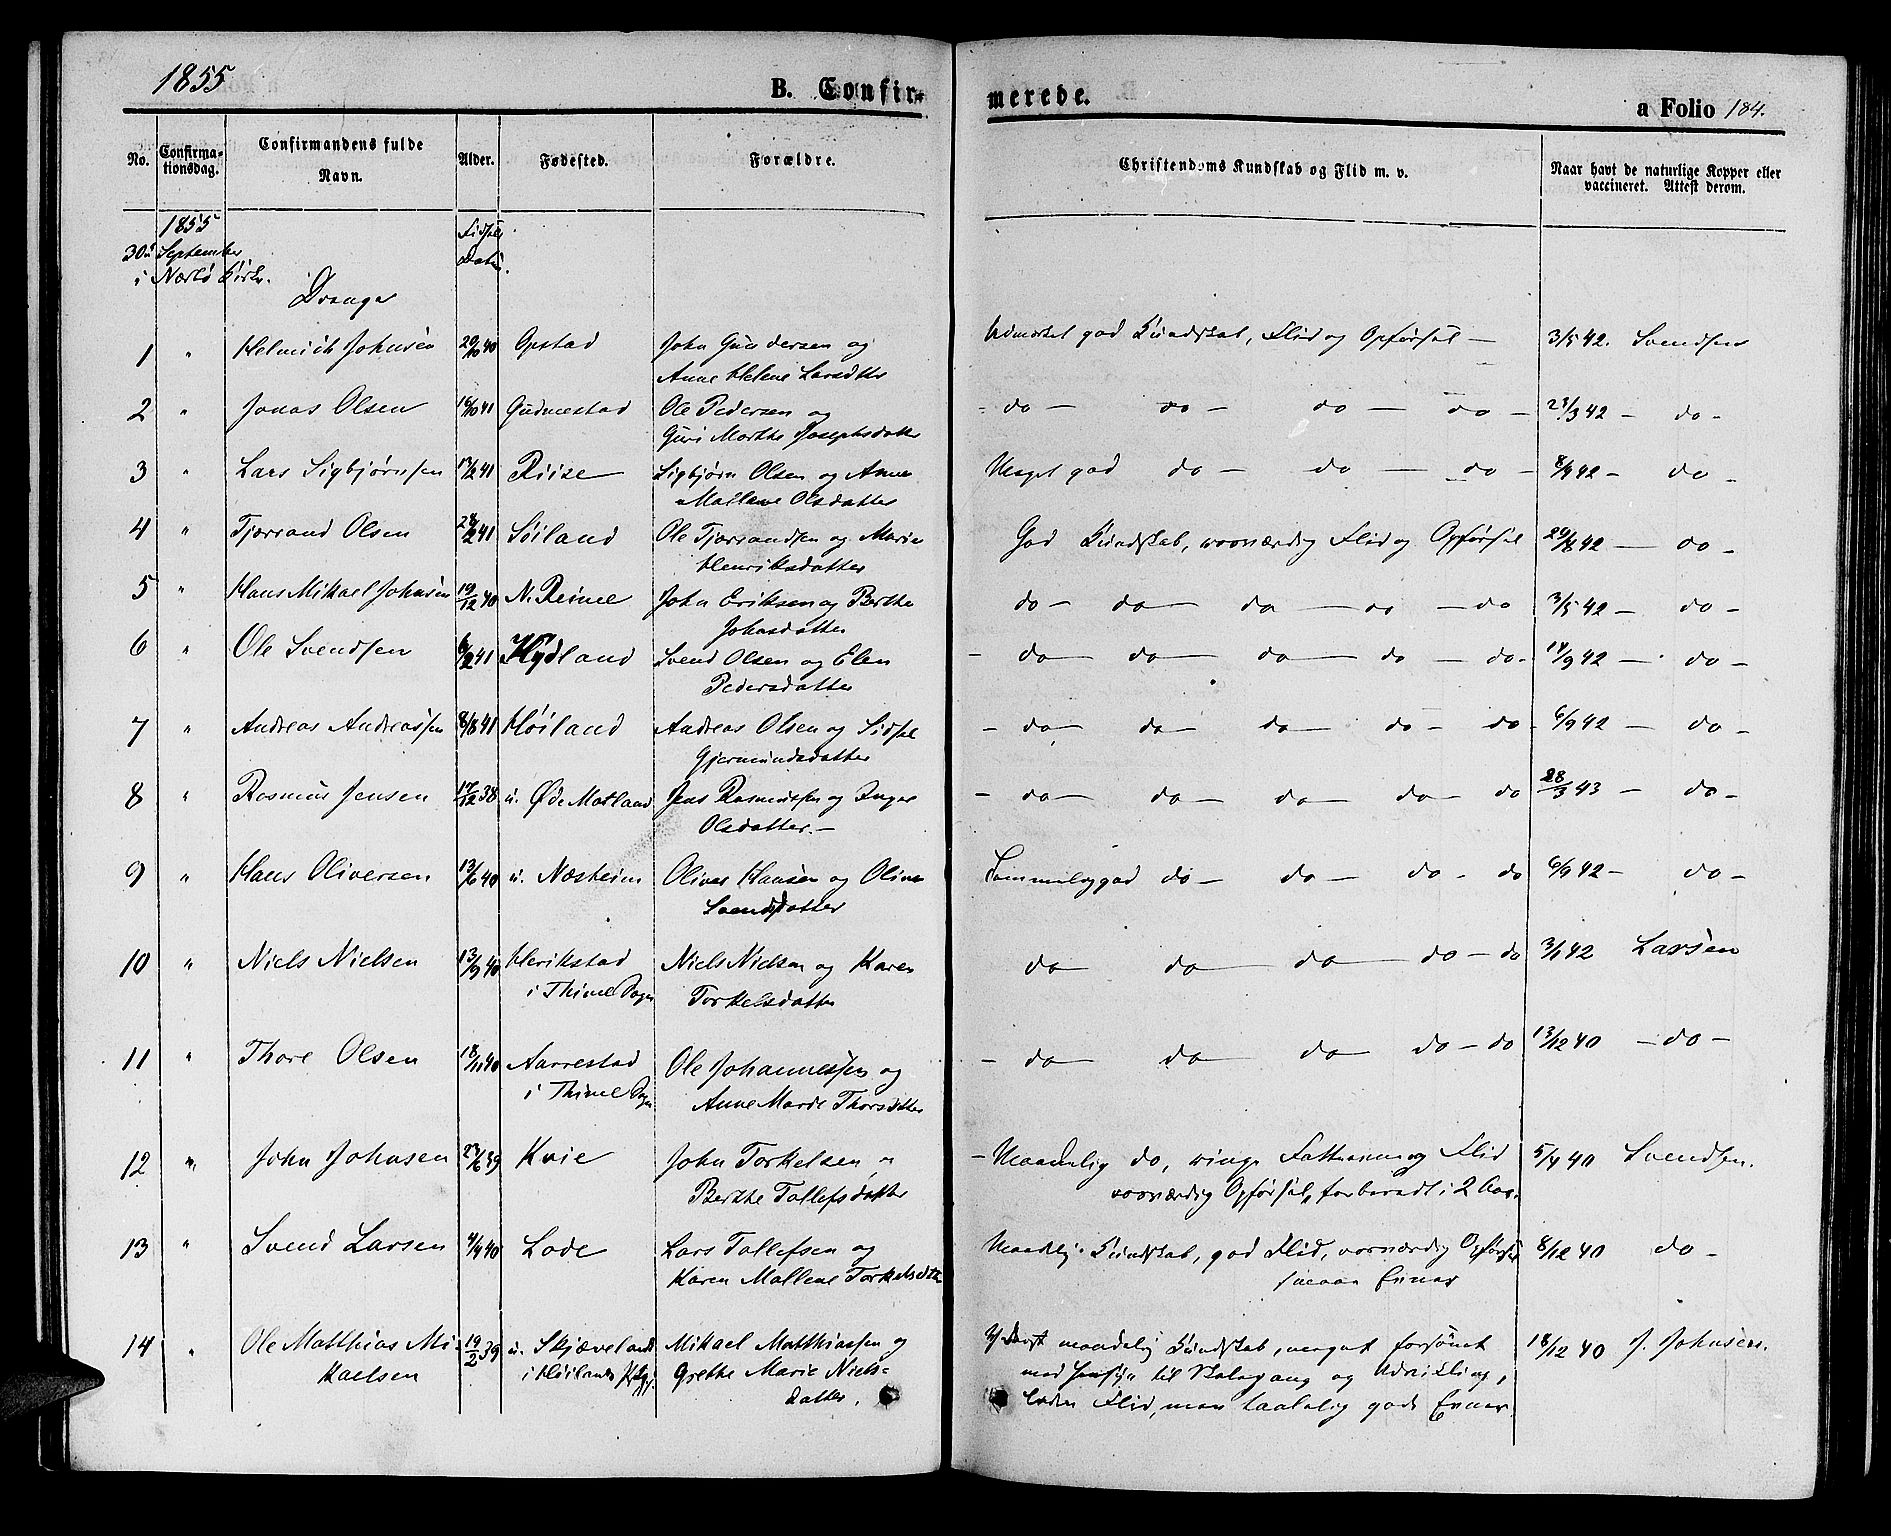 1855
B. Confir-
merede.
a Folio 184.
No.
Confirma-
tionsdag.
Confirmandens fulde
Navn.
Alder.
Fødested.
Forældre.
Christendoms Kundskab og Flid m. v.
Naar havt de naturlige Kopper eller
vaccineret. Attest derom.
1855
30te September
i Nærbø Kirke.
Fødsels
Datum.
Drenge
1 " Helmich Johnsen 20/10 40 Opstad John Gundersen og Udmærket god Kundskab, Flid og Opførsel — 3/5 42. Svendsen
Anne Helene Larsdtr
2 " Jonas Olsen 41 Gudmestad Ole Pedersen og - do - do - do - do - 23/3 42 - do -
Guri Marthe Josephsdatter
3 " Lars Sigbjørnsen 17/2 41 Riise Sigbjørn Olsen og Anne Meget god do - do - do - 8/4 42 - do -
Mallene Olsdatter
4 " Tjærand Olsen 41 Søiland Ole Tjærandsen og Marie God Kundskab, roesværdig Flid og Opførsel 42 - do -
Henriksdatter
5 " Hans Mikael Johnsen 19/12 40 N. Reime John Eriksen og Berthe do - do - do - do - do 3/5 42 - do -
Johnsdatter
6 " Ole Svendsen 6/2 41 Høiland Svend Olsen og Elen - do - do - do - do - do - 14/9 42 - do -
Pedersdatter
7 " Andreas Andreassen 8/8 41 Høiland Andreas Olsen og Sidsel - do - do - do - do - do - 6/9 42 - do -
Gjermundsdatter
8 " Rasmus Jensen 17/12 38 u. Øde Motland Jens Rasmussen og Inger - do - do - do - do - do 28/3 43 - do -
Olsdatter. -
9 " Hans Oliversen 13/6 40 u. Næsheim Oliver Hansen og Oline Temmelig god do - do - do - do 6/9 42 - do -
Svendsdatter
10 " Niels Nielsen 13/9 40 Herikstad Niels Nielsen og Karen do - do - do - do - do 3/1 42 Larsen
i Thime Sogn Torkelsdatter
11 " Thore Olsen 18/11 40 Aarrestad Ole Johannessen og - do - do - do - do - do 13/12 40 - do -
i Thime Sogn Anne Marde Thorsdatter
12 " John Johnsen 39 Kvie John Torkelsen og - Maadelig do, ringe Fatteevne og Flid 5/4 40 Svendsen.
Berthe Tollefsdatter roesværdig Opførsel, forberedt i 2 Aar.
13 " Svend Larsen 4/4 40 Lode Lars Tollefsen og Maadelig Kundskab, god Flid, roesværdig Opførsel 8/12 40 do -
Karen Mallene Torkelsdtr smaae Evner
14 " Ole Matthias Mi- 19/2 39 u. Skjæveland Mikael Matthiassen og Yderst maadelig Kundskab, meget forsømt 18/12 40 J. Johnsen.
kaelsen i Høilands Prgj. Grethe Marie Niels- med Hensyn til Skolegang og Udvikling,
datter. Flid, men taalelig gode Evner.